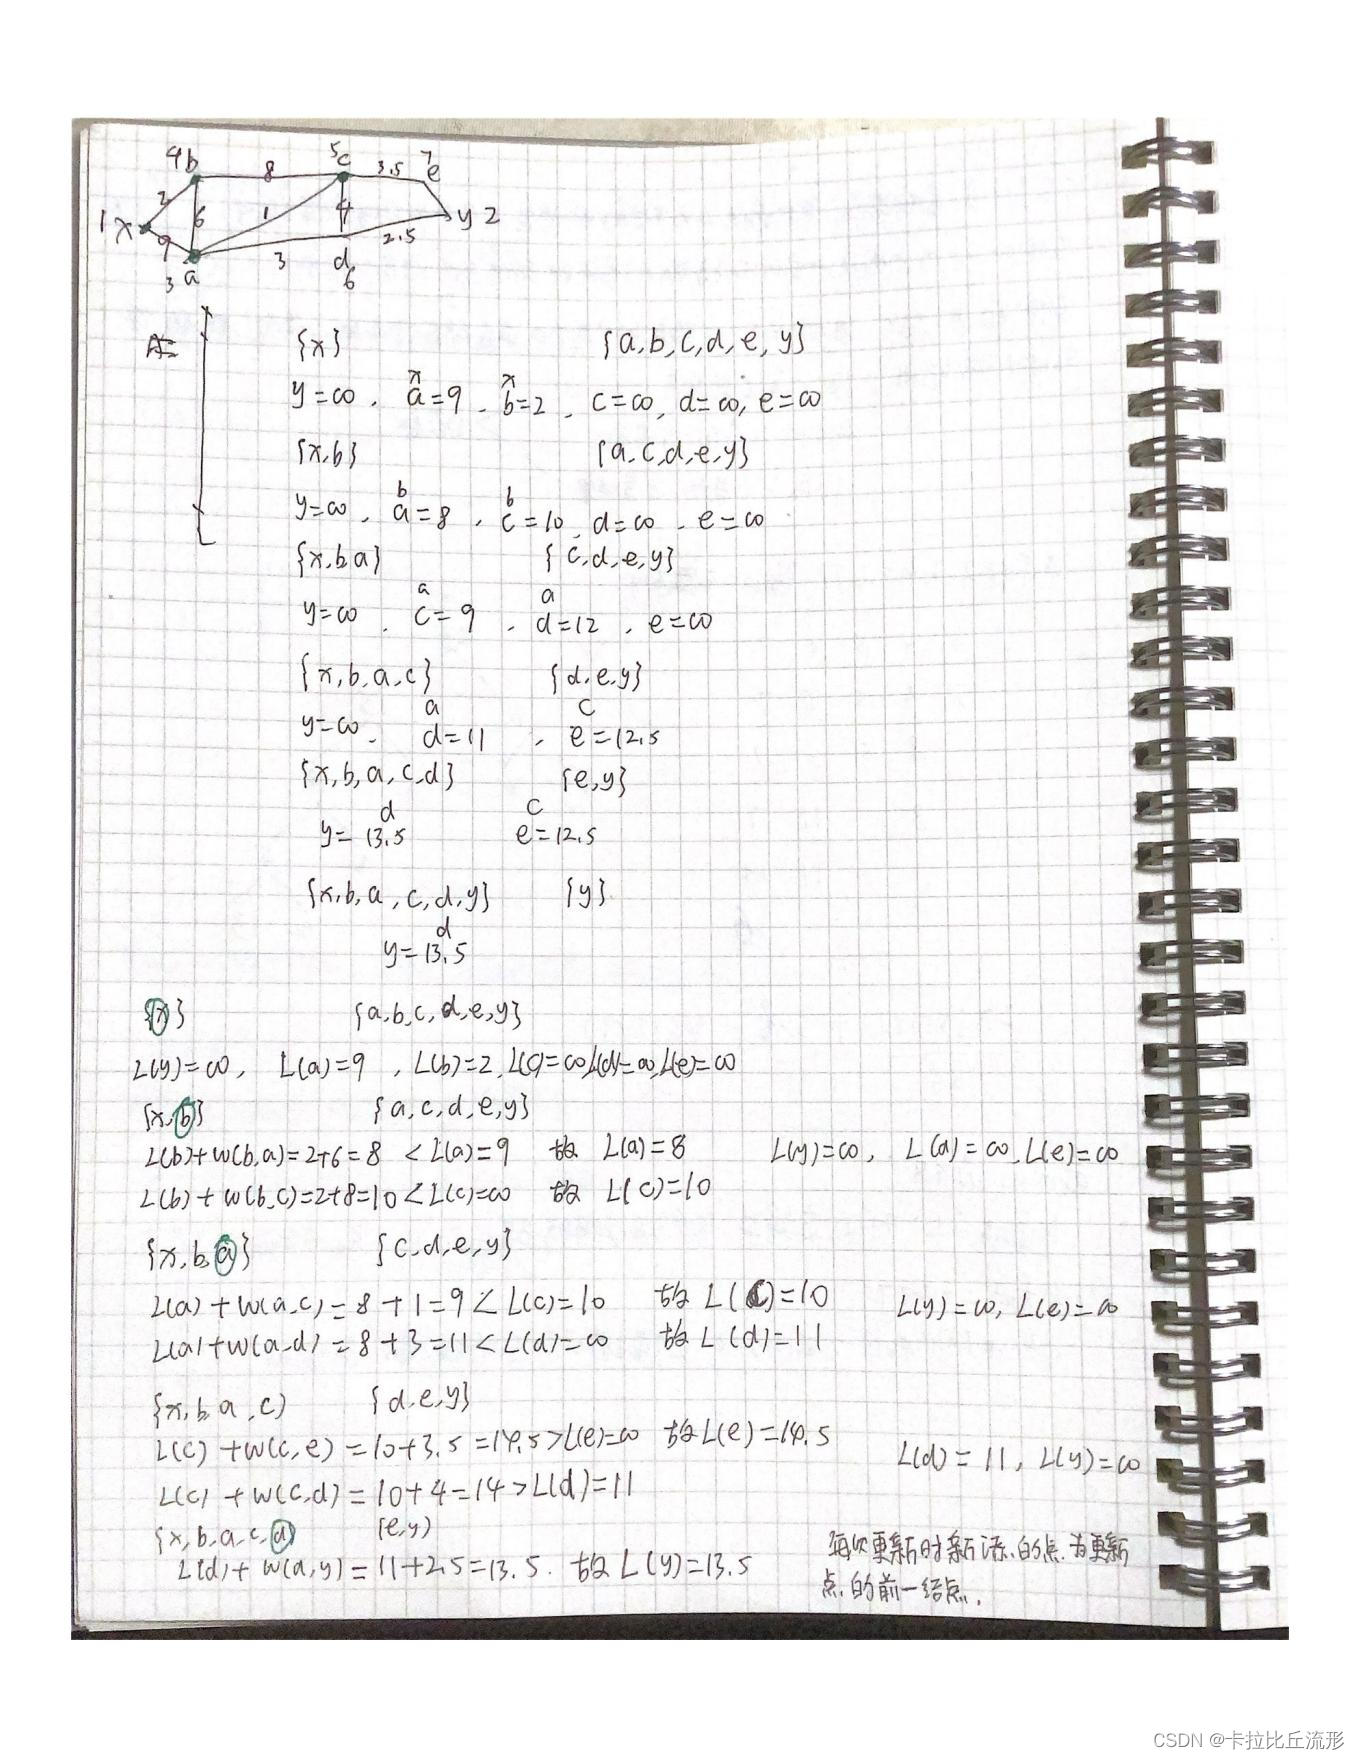 4b 8 5c 3.5 7e
2
1x 6 1 4 y2
9 3 2.5
3a d
6
{x} {a,b,c,d,e,y}
x x
y=∞, a=9, b=2, c=∞, d=∞, e=∞
{x,b} {a,c,d,e,y}
b b
y=∞, a=8, c=10, d=∞, e=∞
{x,b,a} {c,d,e,y}
a a
y=∞, c=9, d=12, e=∞
{x,b,a,c} {d,e,y}
a c
y=∞, d=11, e=12.5
{x,b,a,c,d} {e,y}
d c
y=13.5 e=12.5
{x,b,a,c,d,y} {y}
d
y=13.5
{x} {a,b,c,d,e,y}
L(y)=∞, L(a)=9, L(b)=2, L(c)=∞, L(d)=∞, L(e)=∞
{x,b} {a,c,d,e,y}
L(b)+w(b,a)=2+6=8 <L(a)=9 故 L(a)=8 L(y)=∞, L(d)=∞, L(e)=∞
L(b)+w(b,c)=2+8=10<L(c)=∞ 故 L(c)=10
{x,b,a} {c,d,e,y}
L(a)+w(a,c)=8+1=9<L(c)=10 故 L(c)=10 L(y)=∞, L(e)=∞
L(a)+w(a,d)=8+3=11<L(d)=∞ 故 L(d)=11
{x,b,a,c) {d,e,y}
L(c)+w(c,e)=10+3.5=14.5>L(e)=∞ 故L(e)=14.5 L(d)=11, L(y)=∞
L(c)+w(c,d)=10+4=14>L(d)=11
{x,b,a,c,d} {e,y)
L(d)+w(a,y)=11+2.5=13.5. 故 L(y)=13.5
每次更新时新添的点为更新
点的前一结点.
CSDN @卡拉比丘流形